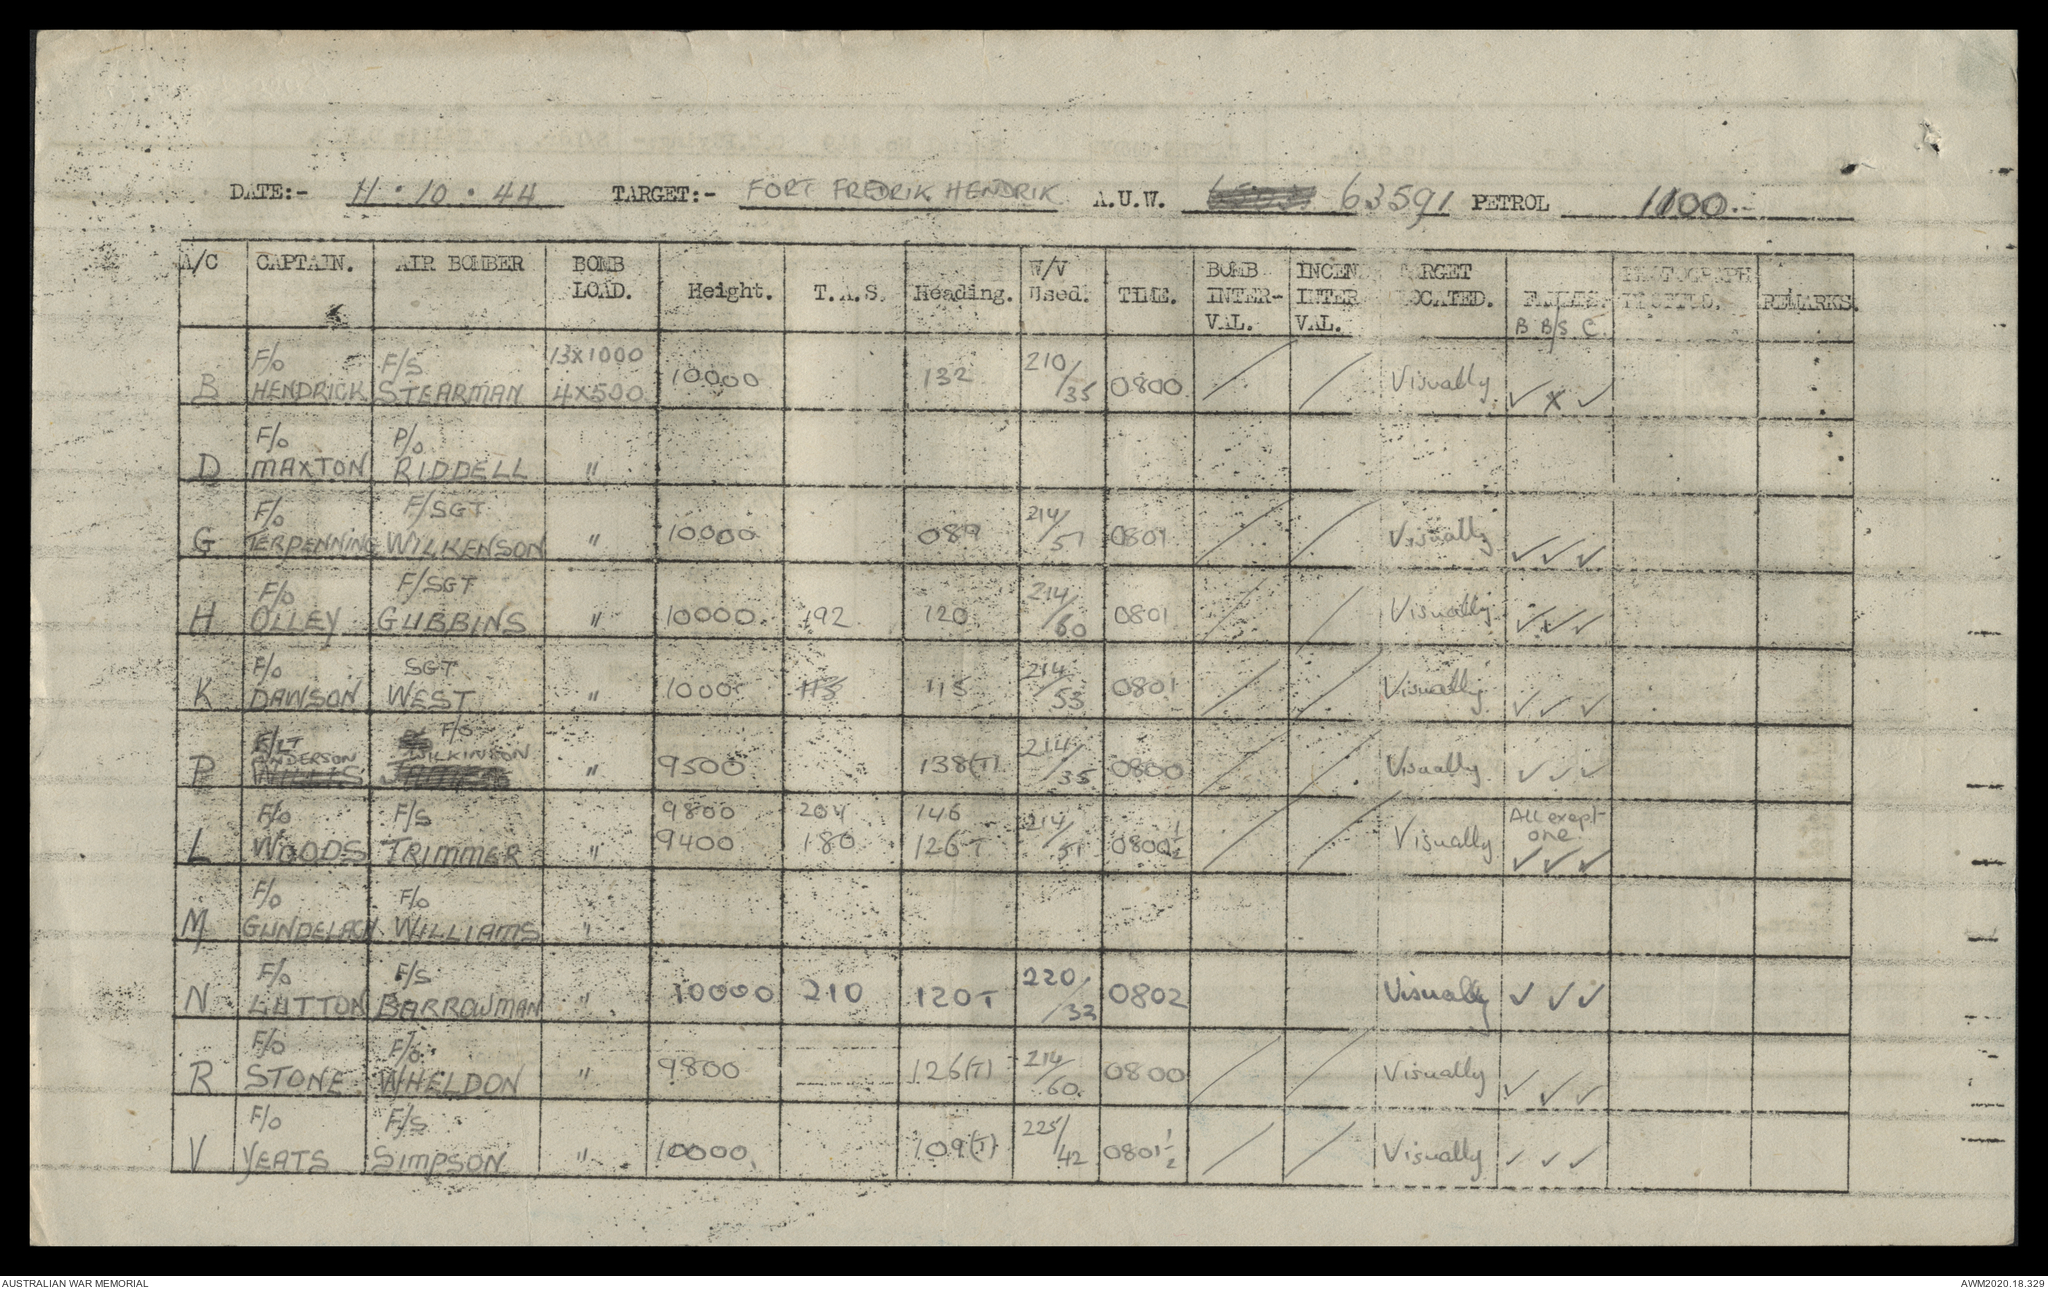 DATE:- 11.10.44 TARGET:- FORT FREDRIK HENDRIK A.U.W. 63591 PETROL 1100.
A/C CAPTAIN. AIR BOMBER BOMB LOAD. Height. T.A.S. Heading. W/V Used. TIME. BOMB INTER-VAL. INCEN INTER VAL. TARGET LOCATED. B B/S C. PHOTOGRAPH REMARKS.
B F/O HENDRICK F/S STEARMAN 13X1000 4X500 10000 132 210/35 0800 Visually ✓ X ✓
D F/O MAXTON P/O RIDDELL "
G F/O TERPENNING F/SGT WILKENSON " 10000 089 214/51 0801 Visually ✓ ✓ ✓
H F/O OLLEY F/SGT GUBBINS " 10000 192 120 214/60 0801 Visually ✓ ✓ ✓
K F/O DAWSON SGT WEST " 1000 115 115 214/53 0801 Visually ✓ ✓ ✓
P F/LT ANDERSON WILLIS F/S WILKINSON " 9500 138(T) 214/35 0800 Visually ✓ ✓ ✓
L F/O WOODS F/S TRIMMER " 9800 9400 204 180 146 126T 214/51 0800½ Visually All exept one ✓ ✓ ✓
M F/O GUNDELACH F/O WILLIAMS "
N F/O LUTTON F/S BARROWMAN " 10000 210 120T 220/33 0802 Visually ✓ ✓ ✓
R F/O STONE F/O WHELDON " 9800 126(T) 214/60 0800 Visually ✓ ✓ ✓
V F/O YEATS F/S SIMPSON " 10000 109(T) 225/42 0801½ Visually ✓ ✓ ✓
AUSTRALIAN WAR MEMORIAL AWM2020.18.329